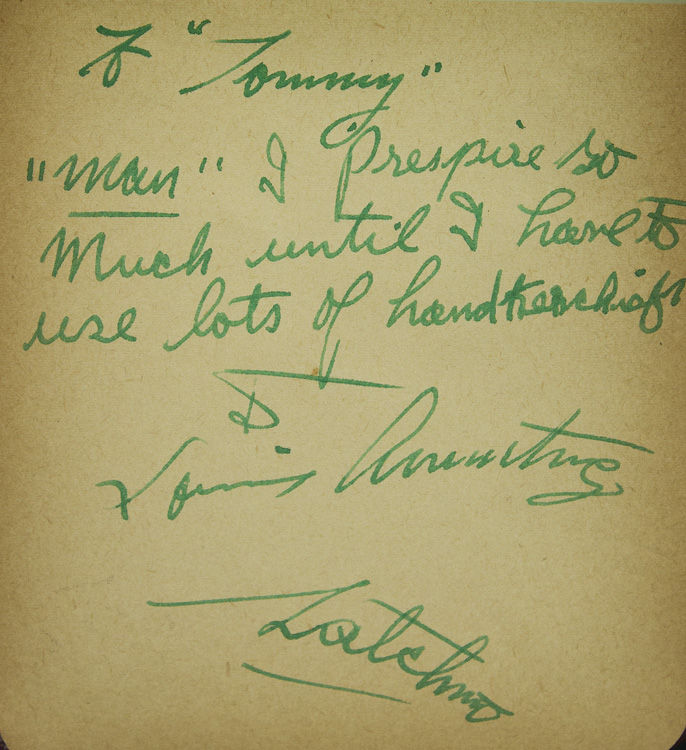 To "Tommy"
"Man" I Prespire so
Much until I have to
use lots of handkerchiefs
Louis Armstrong
Satchmo